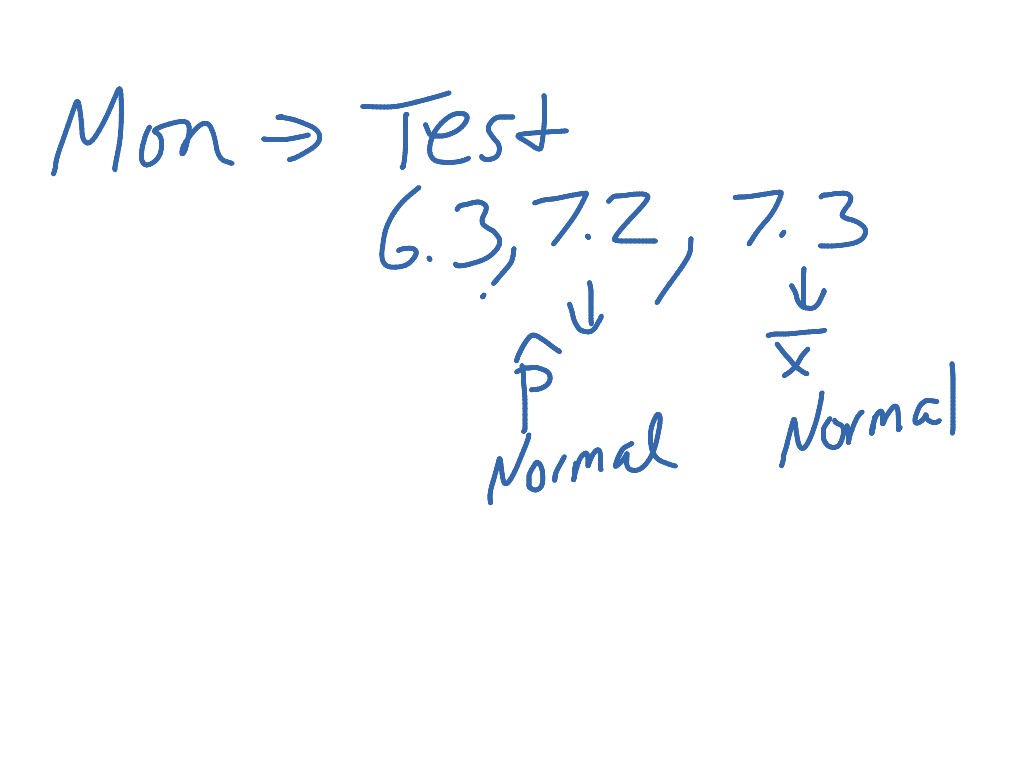 Mon → Test
6.3, 7.2, 7.3
↓ ↓
p̂ x̄
Normal Normal